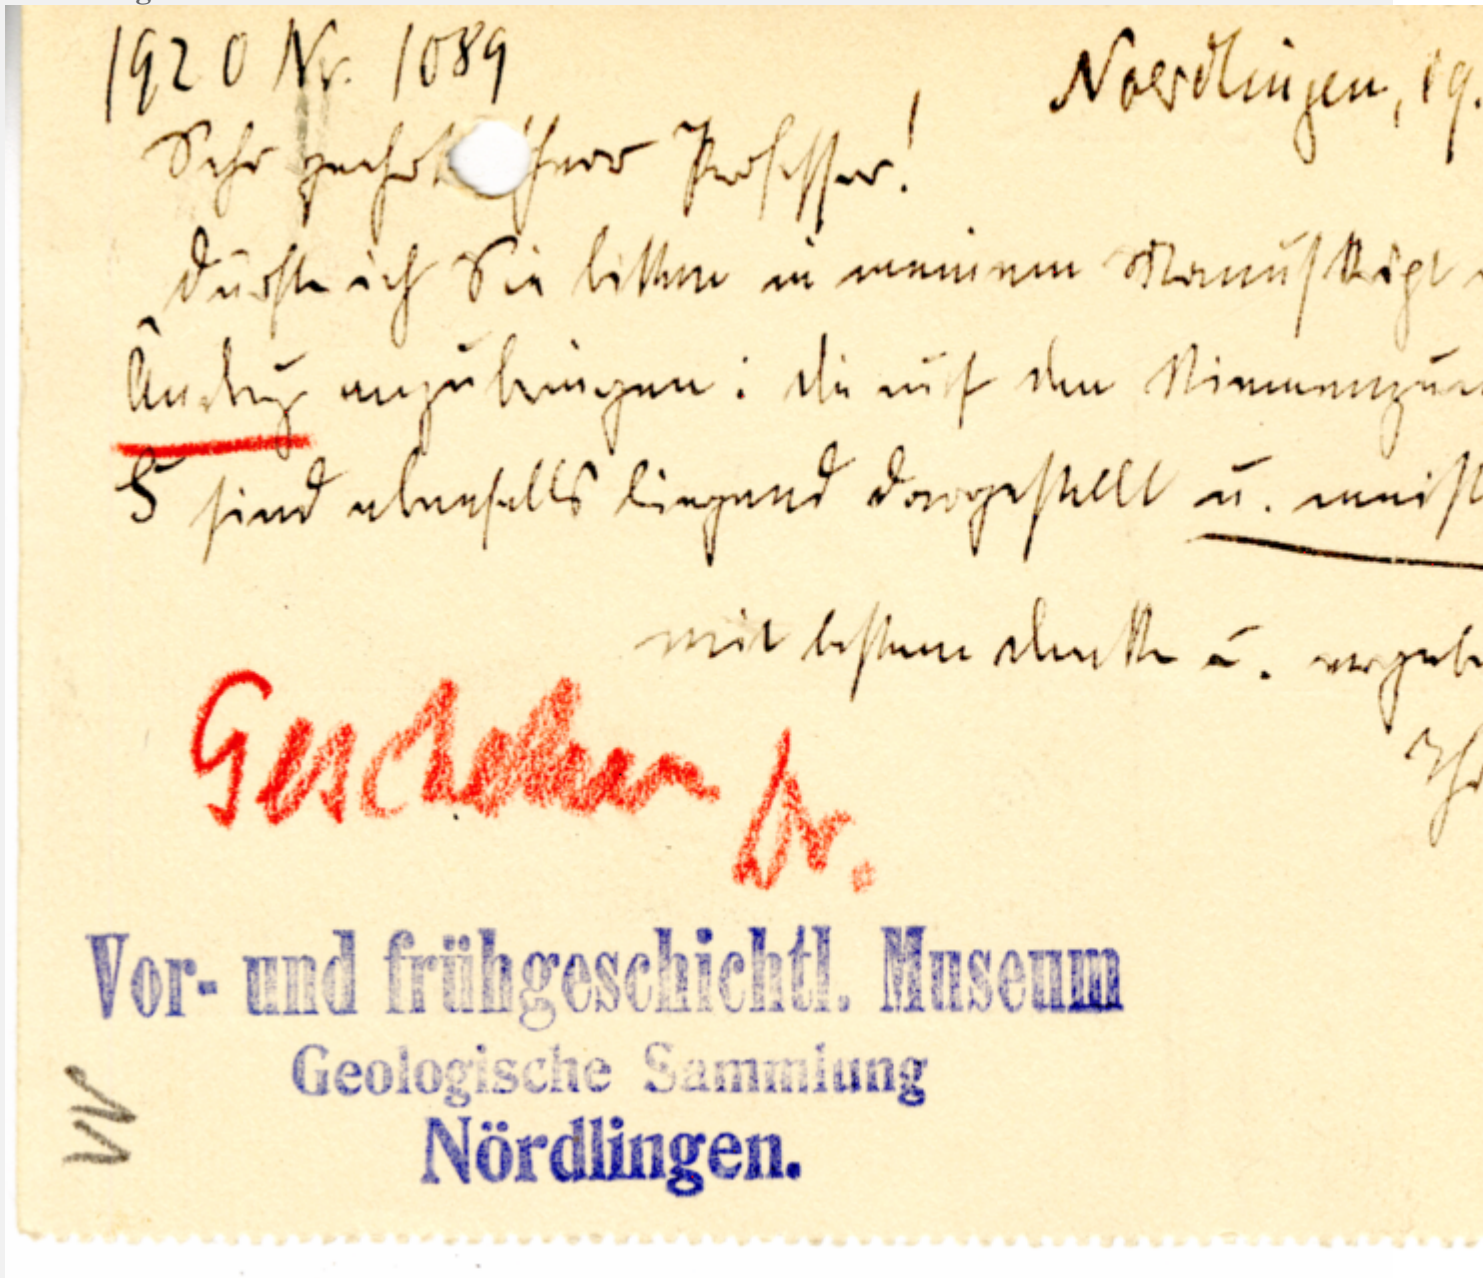 1920 Nr. 1089
Noerdlingen, 19.
Sehr geehrter Herr Professor!
Dürfte ich Sie bitten in meinem Manuskript
Ändrg anzubringen: die auf den Riemenzun
S sind ebenfalls liegend dargestellt u. meist
mit bestem Danke u. ergeb
Ihr
Geschehen Dr.
Vor- und frühgeschichtl. Museum
Geologische Sammlung
Nördlingen.